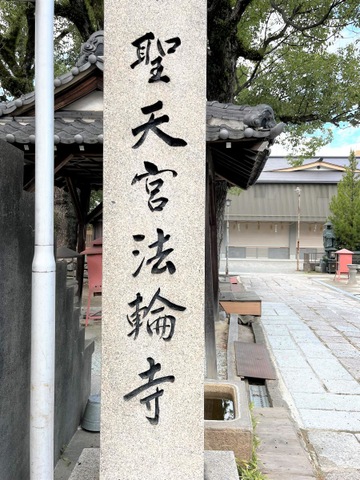 聖天宮法輪寺